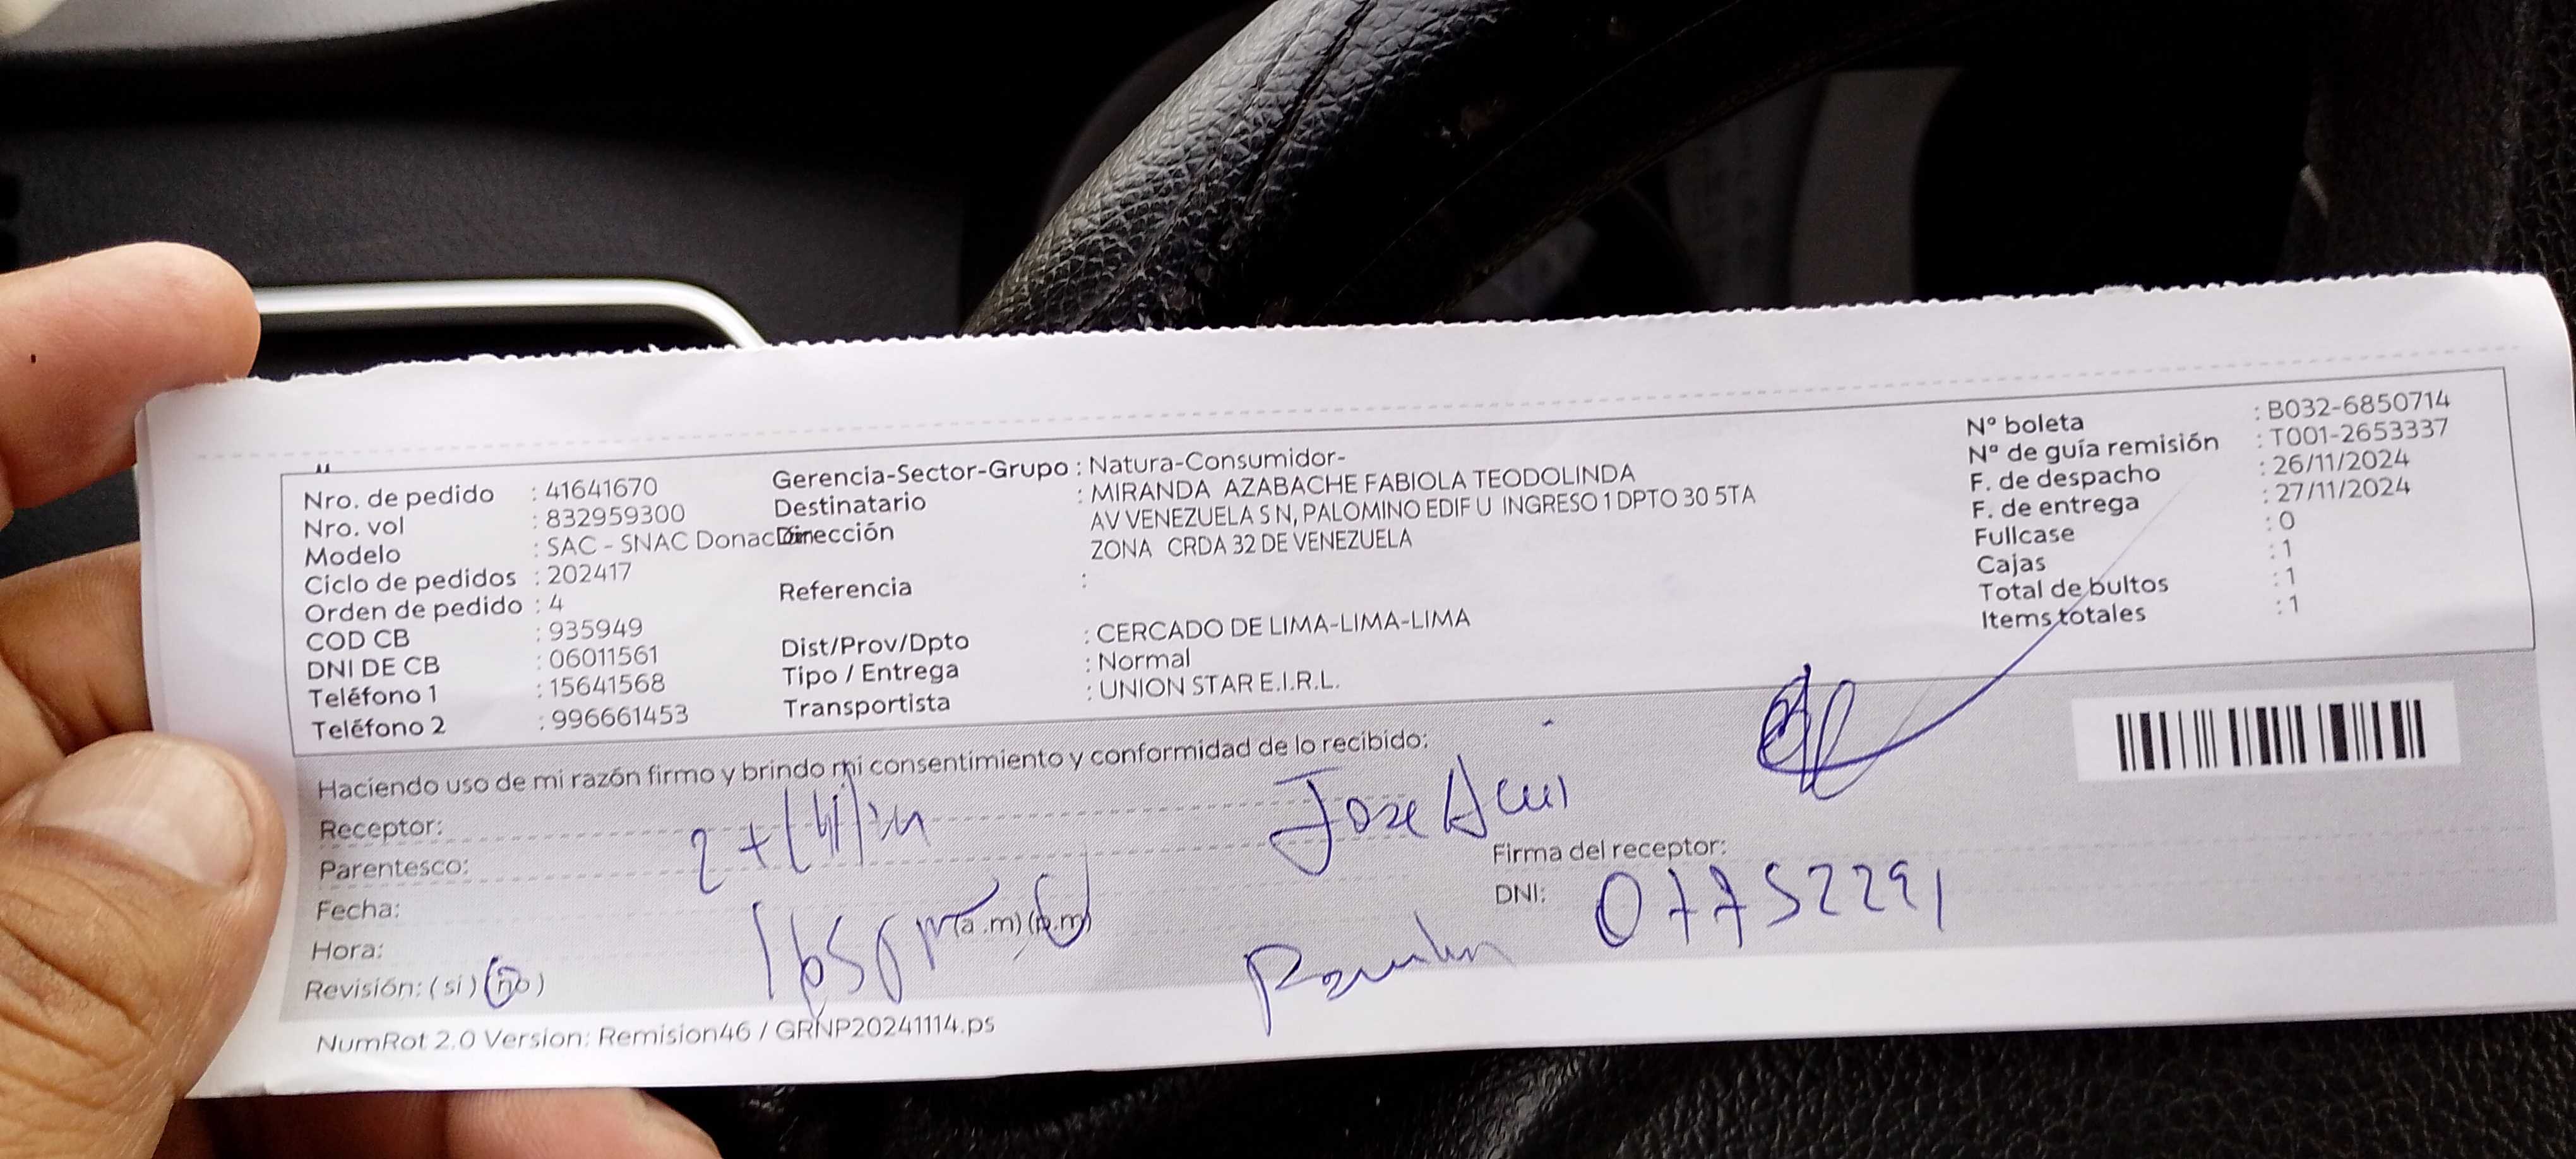 Nro. de pedido : 41641670
Nro. vol : 832959300
Modelo : SAC - SNAC Donac
Ciclo de pedidos : 202417
Orden de pedido : 4
COD CB : 935949
DNI DE CB : 06011561
Teléfono 1 : 15641568
Teléfono 2 : 996661453
Gerencia-Sector-Grupo : Natura-Consumidor-
Destinatario : MIRANDA AZABACHE FABIOLA TEODOLINDA
Dirección AV VENEZUELA S N, PALOMINO EDIF U INGRESO 1 DPTO 30 5TA
ZONA CRDA 32 DE VENEZUELA
Referencia :
Dist/Prov/Dpto : CERCADO DE LIMA-LIMA-LIMA
Tipo / Entrega : Normal
Transportista : UNION STAR E.I.R.L.
N° boleta : B032-6850714
N° de guía remisión : T001-2653337
F. de despacho : 26/11/2024
F. de entrega : 27/11/2024
Fullcase : 0
Cajas : 1
Total de bultos : 1
Items totales : 1
Haciendo uso de mi razón firmo y brindo mi consentimiento y conformidad de lo recibido:
Receptor: Jose
Parentesco:
Firma del receptor:
Fecha:
DNI: 07752291
Hora: (a.m) (p.m)
Revisión: ( si ) (no)
NumRot 2.0 Version: Remision46 / GRNP20241114.ps